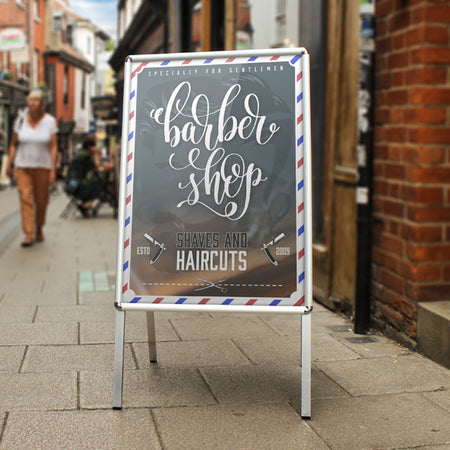 SPECIALLY FOR GENTLEMEN
barber
shop
SHAVES AND
ESTD 2009
HAIRCUTS